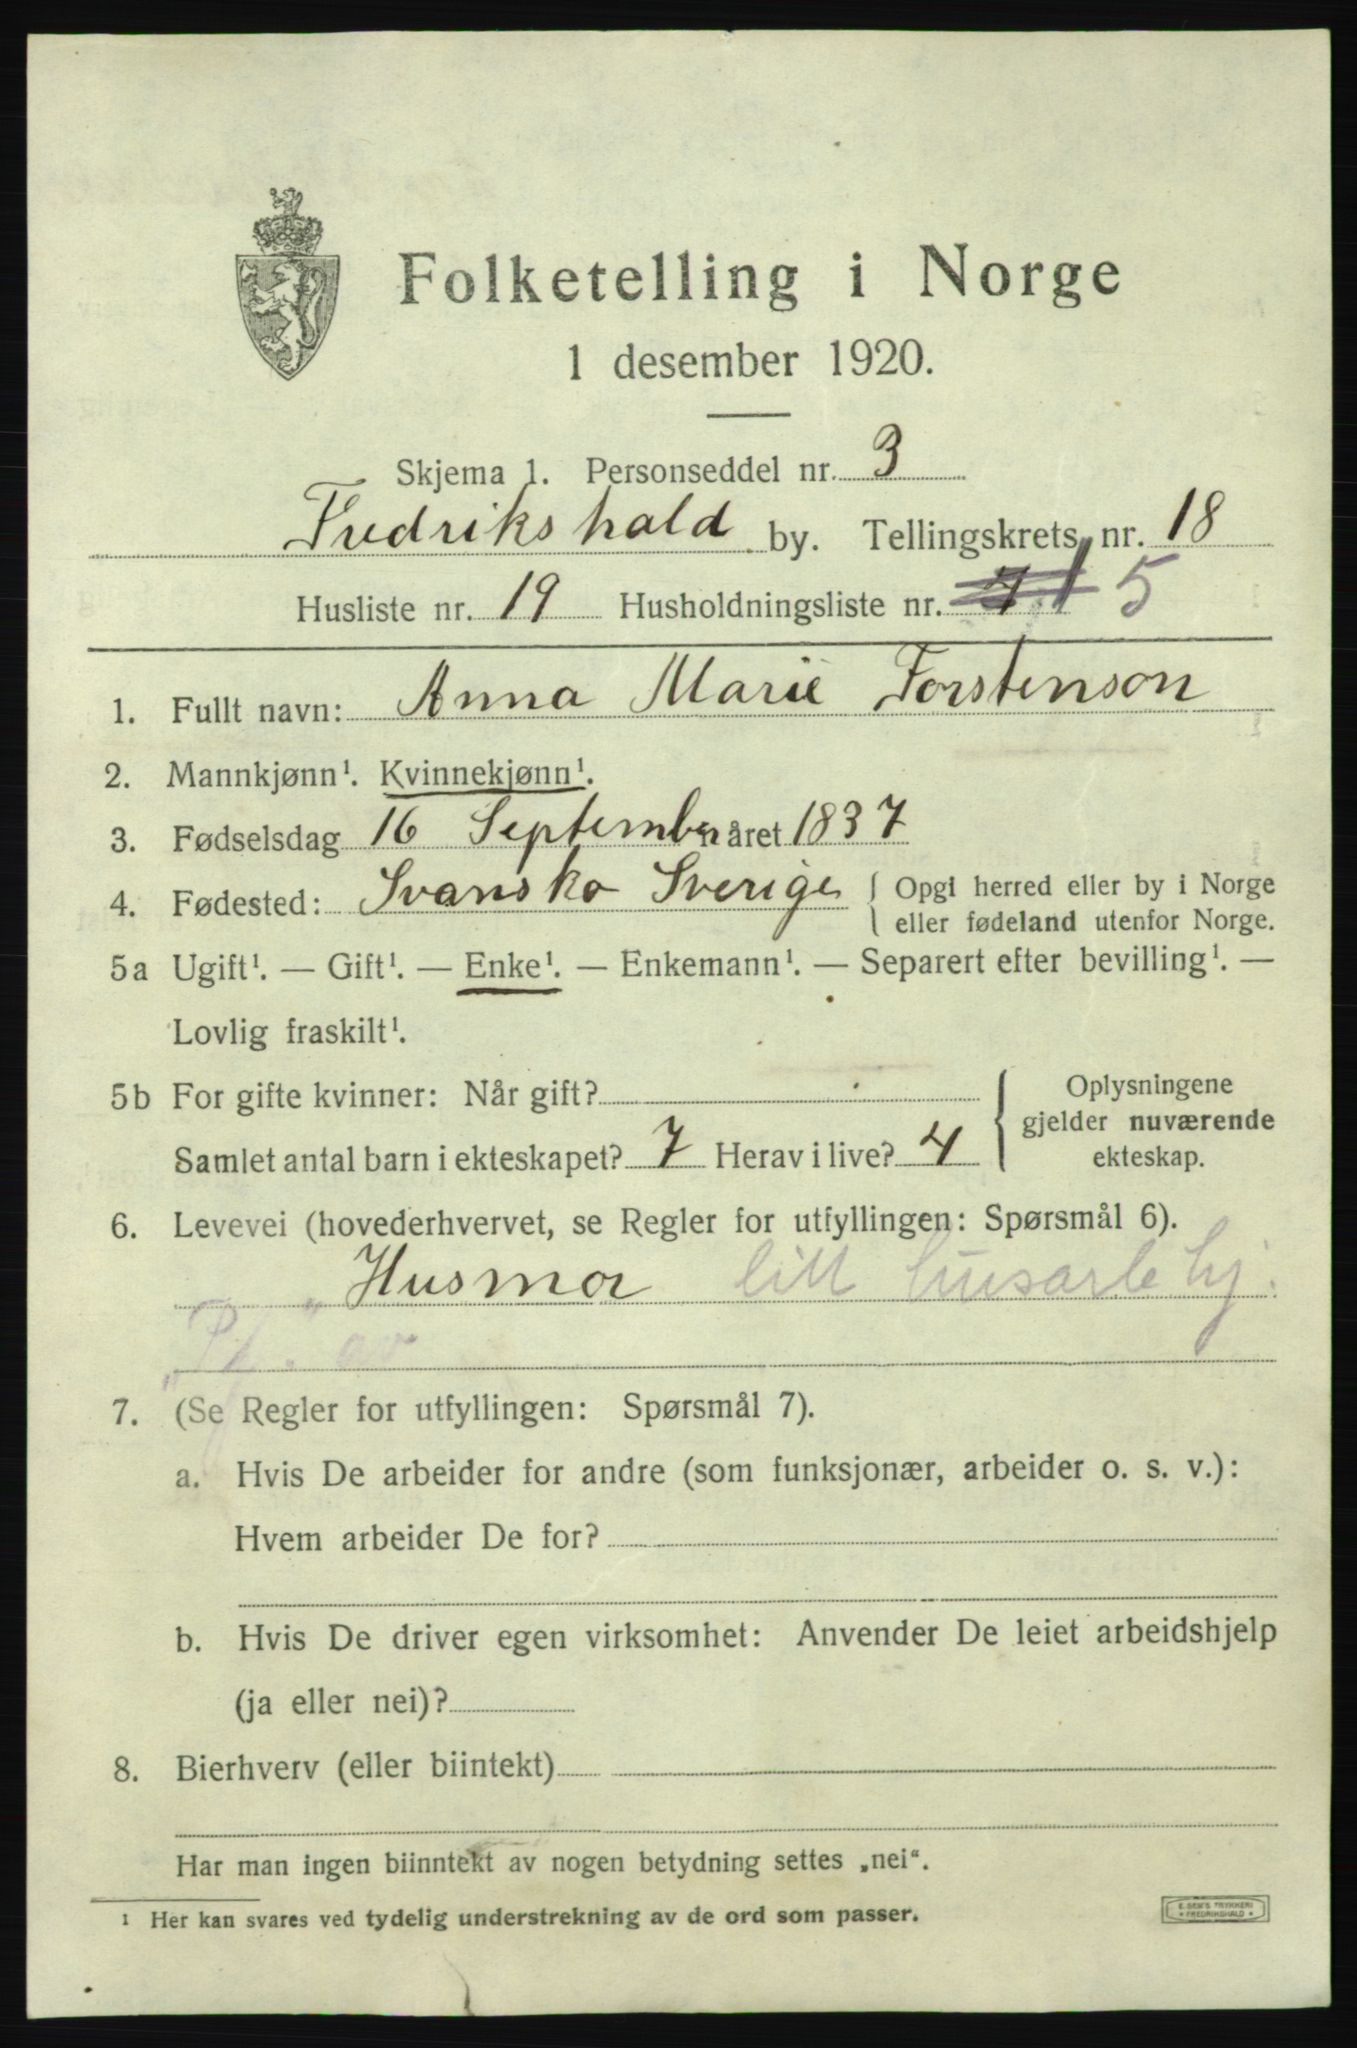 Folketelling i Norge
1 desember 1920.
Skjema 1. Personseddel nr. 3
Fredrikshald by. Tellingskrets nr. 18
Husliste nr. 19 Husholdningsliste nr. 5
1. Fullt navn: Anna Marie Torstenson
2. Mannkjønn¹. Kvinnekjønn¹.
3. Fødselsdag 16 September året 1837
4. Fødested: Svansko Sverige { Opgi herred eller by i Norge
{ eller fødeland utenfor Norge.
5a Ugift¹. — Gift¹. — Enke¹. — Enkemann¹. — Separert efter bevilling¹. —
Lovlig fraskilt¹.
5b For gifte kvinner: Når gift?
Samlet antal barn i ekteskapet? 7 Herav i live? 4
{ Oplysningene
gjelder nuværende
ekteskap.
6. Levevei (hovederhvervet, se Regler for utfyllingen: Spørsmål 6).
Husmor litt husarb hj.
7. (Se Regler for utfyllingen: Spørsmål 7).
a. Hvis De arbeider for andre (som funksjonær, arbeider o. s. v.):
Hvem arbeider De for?
b. Hvis De driver egen virksomhet: Anvender De leiet arbeidshjelp
(ja eller nei)?
8. Bierhverv (eller biintekt)
Har man ingen biinntekt av nogen betydning settes „nei“.
¹ Her kan svares ved tydelig understrekning av de ord som passer.
E. SEM'S TRYKKERI
* FREDRIKSHALD *